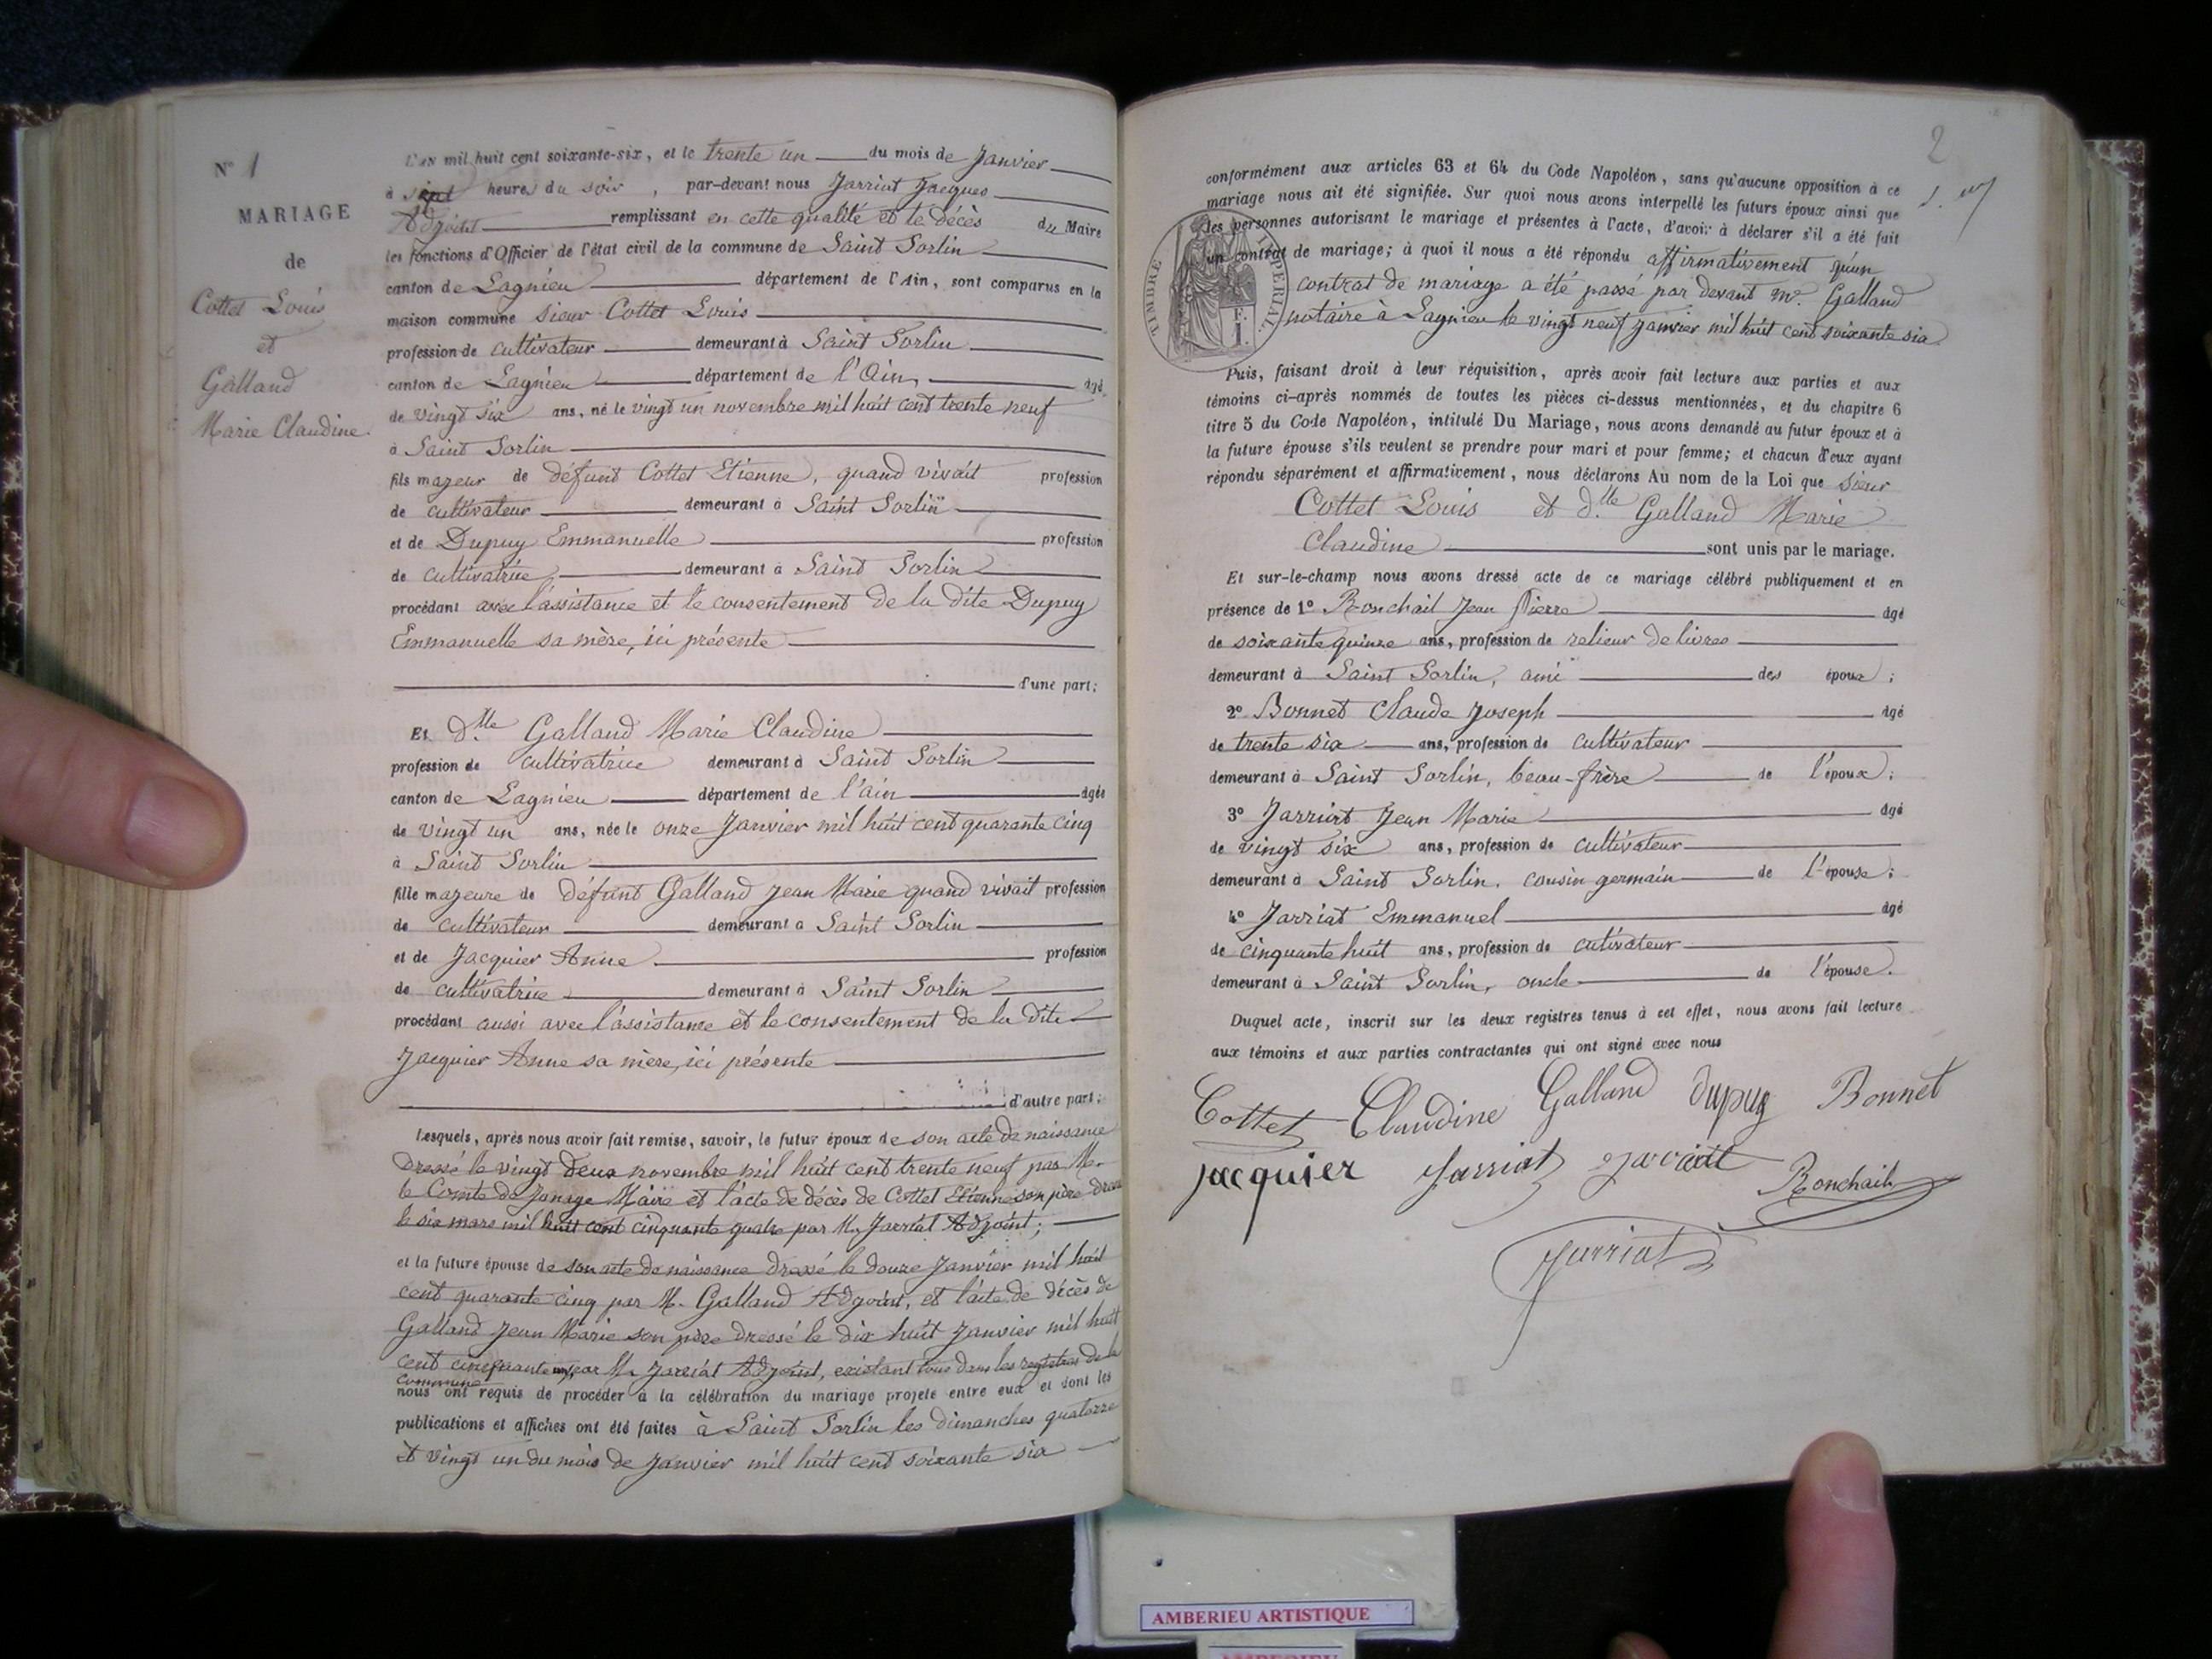 N° 1
MARIAGE
de
Cottet Louis
et
Galland
Marie Claudine.
L'an mil huit cent soixante-six, et le trente un du mois de Janvier
à sept heures du soir, par-devant nous Jarriat Jacques
Adjoint remplissant en cette qualité et le décès du Maire
les fonctions d'Officier de l'état civil de la commune de Saint Sorlin
canton de Lagnieu département de l'Ain, sont comparus en la
maison commune sieur Cottet Louis
profession de cultivateur demeurant à Saint Sorlin
canton de Lagnieu département de l'Ain, âgé
de vingt six ans, né le vingt un novembre mil huit cent trente neuf
à Saint Sorlin
fils majeur de défunt Cottet Etienne, quand vivait profession
de cultivateur demeurant à Saint Sorlin
et de Dupuy Emmanuelle profession
de cultivatrice demeurant à Saint Sorlin
procédant avec l'assistance et le consentement de la dite Dupuy
Emmanuelle sa mère, ici présente
d'une part;
Et Dlle Galland Marie Claudine
profession de cultivatrice demeurant à Saint Sorlin
canton de Lagnieu département de l'ain âgée
de vingt un ans, née le onze Janvier mil huit cent quarante cinq
à Saint Sorlin
fille majeure de défunt Galland Jean Marie quand vivait profession
de cultivateur demeurant à Saint Sorlin
et de Jacquier Anne profession
de cultivatrice demeurant à Saint Sorlin
procédant aussi avec l'assistance et le consentement de la dite
Jacquier Anne sa mère, ici présente
d'autre part;
Lesquels, après nous avoir fait remise, savoir, le futur époux de son acte de naissance
Dressé le vingt deux novembre mil huit cent trente neuf par M.
le Comte de Jonage Maire et l'acte de décès de Cottet Etienne son père dressé
le six mars mil huit cent cinquante quatre par M. Jarriat Adjoint;
et la future épouse de son acte de naissance dressé le douze Janvier mil huit
cent quarante cinq par M. Galland Adjoint, et l'acte de décès de
Galland Jean Marie son père dressé le dix huit Janvier mil huit
cent cinquante un par M. Jarriat Adjoint, existant tous dans les registres de la
commune
nous ont requis de procéder à la célébration du mariage projeté entre eux et dont les
publications et affiches ont été faites à Saint Sorlin les dimanches quatorze
et vingt un du mois de Janvier mil huit cent soixante six
2
conformément aux articles 63 et 64 du Code Napoléon, sans qu'aucune opposition à ce
mariage nous ait été signifiée. Sur quoi nous avons interpellé les futurs époux ainsi que
les personnes autorisant le mariage et présentes à l'acte, d'avoir à déclarer s'il a été fait
un contrat de mariage; à quoi il nous a été répondu affirmativement qu'un
contrat de mariage a été passé par devant Mr. Galland
notaire à Lagnieu le vingt neuf janvier mil huit cent soixante six
TIMBRE IMPERIAL
1 F.
Puis, faisant droit à leur réquisition, après avoir fait lecture aux parties et aux
témoins ci-après nommés de toutes les pièces ci-dessus mentionnées, et du chapitre 6
titre 5 du Code Napoléon, intitulé Du Mariage, nous avons demandé au futur époux et à
la future épouse s'ils veulent se prendre pour mari et pour femme; et chacun d'eux ayant
répondu séparément et affirmativement, nous déclarons Au nom de la Loi que sieur
Cottet Louis et dlle Galland Marie
Claudine sont unis par le mariage.
Et sur-le-champ nous avons dressé acte de ce mariage célébré publiquement et en
présence de 1° Ronchail Jean Pierre âgé
de soixante quinze ans, profession de relieur de livres
demeurant à Saint Sorlin, ami des époux;
2° Bonnet Claude Joseph âgé
de trente six ans, profession de cultivateur
demeurant à Saint Sorlin, beau-frère de l'époux;
3° Jarriat Jean Marie âgé
de vingt six ans, profession de cultivateur
demeurant à Saint Sorlin, cousin germain de l'épouse;
4° Jarriat Emmanuel âgé
de cinquante huit ans, profession de cultivateur
demeurant à Saint Sorlin, oncle de l'épouse.
Duquel acte, inscrit sur les deux registres tenus à cet effet, nous avons fait lecture
aux témoins et aux parties contractantes qui ont signé avec nous
Cottet Claudine Galland Dupuy Bonnet
jacquier Jarriat Ronchail
Jarriat
AMBERIEU ARTISTIQUE
AMBERIEU